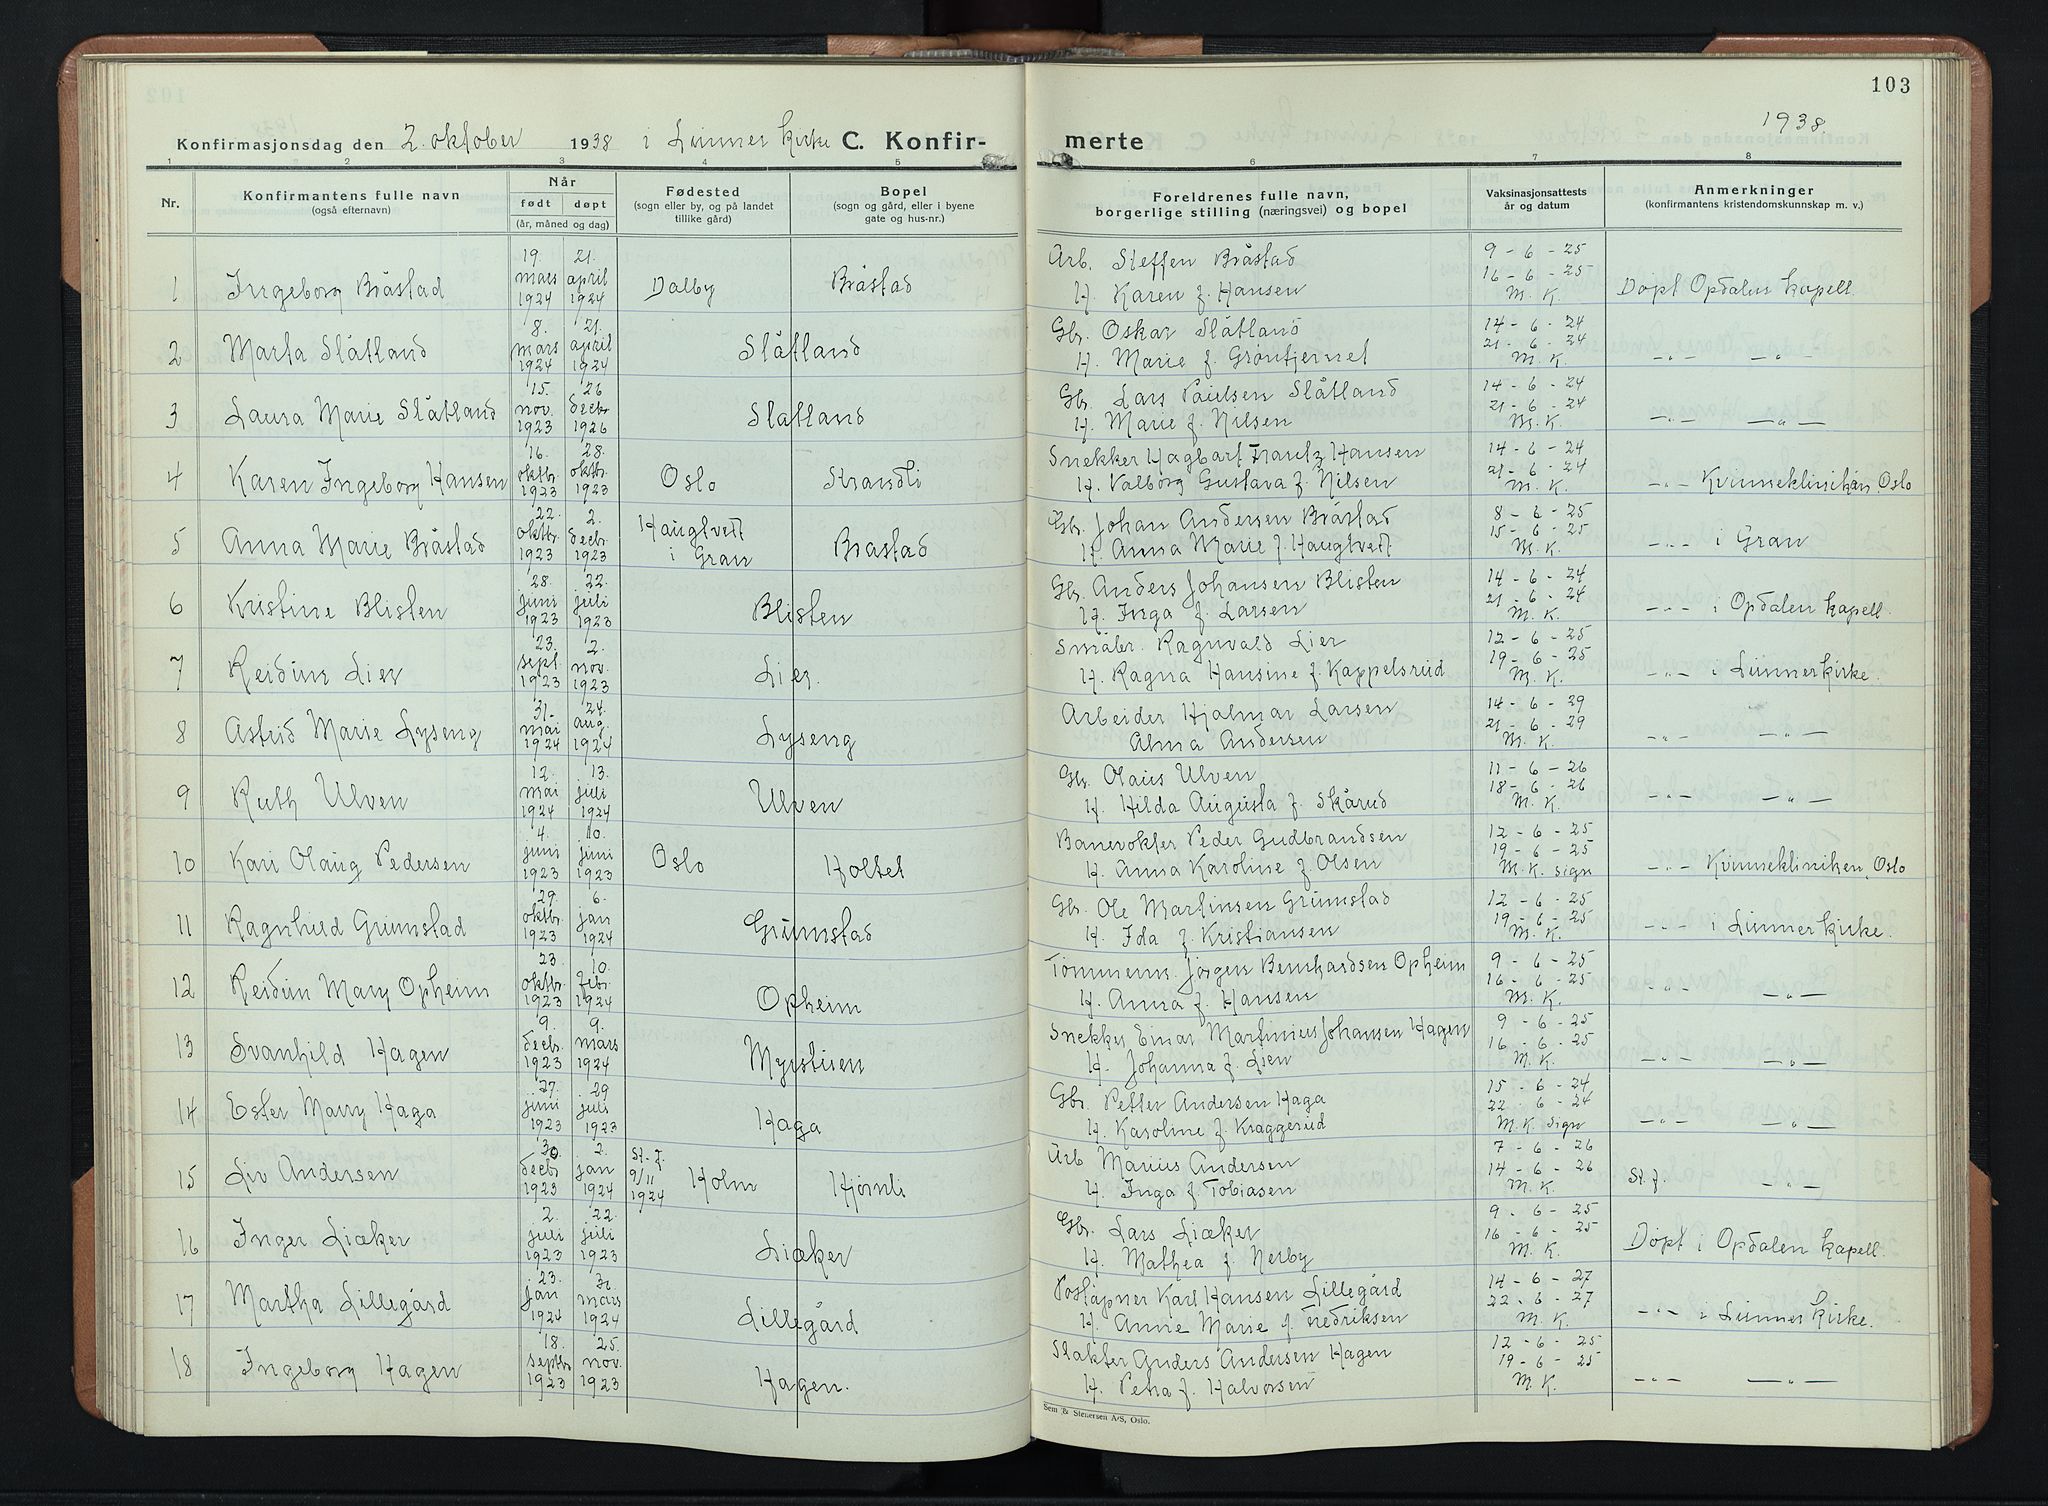 103
Konfirmasjonsdag den 2. oktober 1938 i Lunner kirke C. Konfir-
merte 1938
1 2 3 4 5 6 7 8
Nr.
Konfirmantens fulle navn
(også efternavn)
Når
født døpt
(år, måned og dag)
Fødested
(sogn eller by, og på landet
tillike gård)
Bopel
(sogn og gård, eller i byene
gate og hus-nr.)
Foreldrenes fulle navn,
borgerlige stilling (næringsvei) og bopel
Vaksinasjonsattests
år og datum
Anmerkninger
(konfirmantens kristendomskunnskap m. v.)
19. 21. Arb. Steffen Bråstad 9-6-25
1 Ingeborg Bråstad mars april Dalby Bråstad 16-6-25
1924 1924 H. Karen f. Hansen M. K. Døpt Opdalen kapell.
8. 21. Gbr. Oskar Slåtland 14-6-24
2 Marta Slåtland mars april Slåtland 21-6-24
1924 1924 H. Marie f. Grøntjernet M. K. -"- -"-
15. 26 Gbr. Lars Paulsen Slåtland 14-6-24
3 Laura Marie Slåtland nov. decbr Slåtland 21-6-24
1923 1926 H. Marie f. Nilsen M. K. -"- -"-
16. 28. Snekker Hagbart Frantz Hansen 14-6-24
4 Karen Ingeborg Hansen oktbr. oktbr. Oslo Strandli 21-6-24
1923 1923 H. Valborg Gustava f. Nilsen M. K. -"- Kvinneklinikken, Oslo
22. 2. Haugtvedt Gbr. Johan Andersen Bråstad 8-6-25
5 Anna Marie Bråstad oktbr. decbr. i Gran Bråstad 15-6-25
1923 1923 H. Anna Marie f. Haugtvett M. K. -"- i Gran
28. 22. Gbr. Anders Johansen Blisten 14-6-24
6 Kristine Blisten juni juli Blisten 21-6-24
1923 1923 H. Inga f. Larsen M. K. -"- i Opdalen kapell.
23. 2. Småbr. Ragnvald Lier 12-6-25
7 Reidun Lier sept. nov. Lier. 19-6-25
1923 1923 H. Ragna Hansine f. Kappelsrud M. K. -"- i Lunner kirke.
31. 24. Arbeider Hjalmar Larsen 14-6-29
8 Astrid Marie Lyseng mai aug. Lyseng 21-6-29
1924 1924 Alma Andersen M. K. -"- -"-
12. 13. Gbr. Olaus Ulven 11-6-26
9 Ruth Ulven mai juli Ulven 18-6-26
1924 1924 H. Hilda Augusta f. Skårud M. K. -"- -"-
4. 10. Banevokter Peder Gudbrandsen 12-6-25
10 Kari Olaug Pedersen juni juni Oslo Holtet 19-6-25
1923 1923 H. Anna Karoline f. Olsen M. K. sign -"- Kvinnekliniken, Oslo
29. 6. Gbr. Ole Martinsen Grumstad 12-6-25
11 Ragnhild Grumstad oktbr. jan Grumstad 19-6-25
1923 1924 H. Ida f. Kristiansen M. K. -"- i Lunner kirke.
23. 10. Tømmerm. Jörgen Bernhardsen Opheim 9-6-25
12 Reidun Mary Opheim oktbr. febr. Opheim 16-6-25
1923 1924 H. Anna f. Hansen M. K. -"- -"-
9. 9. Snekker Einar Martinius Johansen Hagen 9-6-25
13 Svanhild Hagen decbr. mars Myrstuen 16-6-25
1923 1924 H. Johanna f. Lien M. K. -"- -"-
27. 29 Gbr. Petter Andersen Haga 15-6-24
14 Ester Mary Haga juni juli Haga 22-6-24
1923 1923 H. Karoline f. Kraggerud M. K. sign -"- -"-
30. 2. St. f. Arb Marius Andersen 7-6-26
15 Liv Andersen decbr jan 9/11 Holm Hjørnli 14-6-26
1923 1924 1924 H. Inga f. Tobiasen M. K. St. f. -"-
2. 22. Gbr. Lars Liåker 9-6-25
16 Inger Liåker juli juli Liåker 16-6-25
1923 1923 H. Mathea f. Nerby M. K. Døpt i Opdalen kapell.
23. Poståpner Karl Hansen Lillegård 14-6-27
17 Martha Lillegård jan mars Lillegård 22-6-27
1924 1924 H. Anne Marie f. Fredriksen M. K. -"- i Lunner Kirke.
18. 25. Slakter Anders Andersen Hagen 12-6-25
18 Ingeborg Hagen septbr nov. Hagen. 19-6-25
1923 1923 H. Petra f. Halvorsen M. K. -"- -"-
Sem & Stenersen A/S, Oslo.